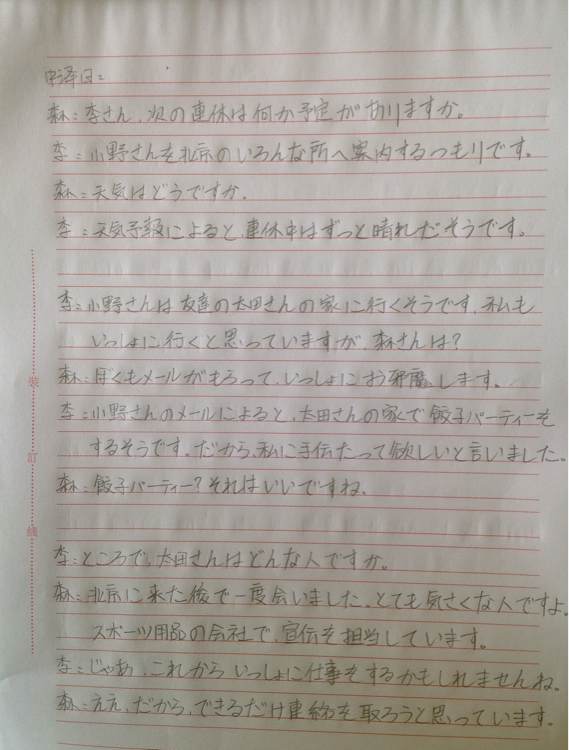 中译日:
森:李さん、次の連休は何か予定がありますか。
李:小野さんを北京のいろんな所へ案内するつもりです。
森:天気はどうですか。
李:天気予報によると、連休中はずっと晴れだそうです。
李:小野さんは友達の太田さんの家に行くそうです。私も
いっしょに行くと思っていますが、森さんは?
森:ぼくもメールがもらって、いっしょにお邪魔します。
李:小野さんのメールによると、太田さんの家で餃子パーティーを
するそうです。だから、私に手伝たって欲しいと言いました。
森:餃子パーティー?それはいいですね。
李:ところで、太田さんはどんな人ですか。
森:北京に来た後で一度会いました。とても気さくな人ですよ。
スポーツ用品の会社で、宣伝を担当しています。
李:じゃあ、これからいっしょに仕事をするかもしれませんね。
森:ええ、だから、できるだけ連絡を取ろうと思っています。
装
訂
綫